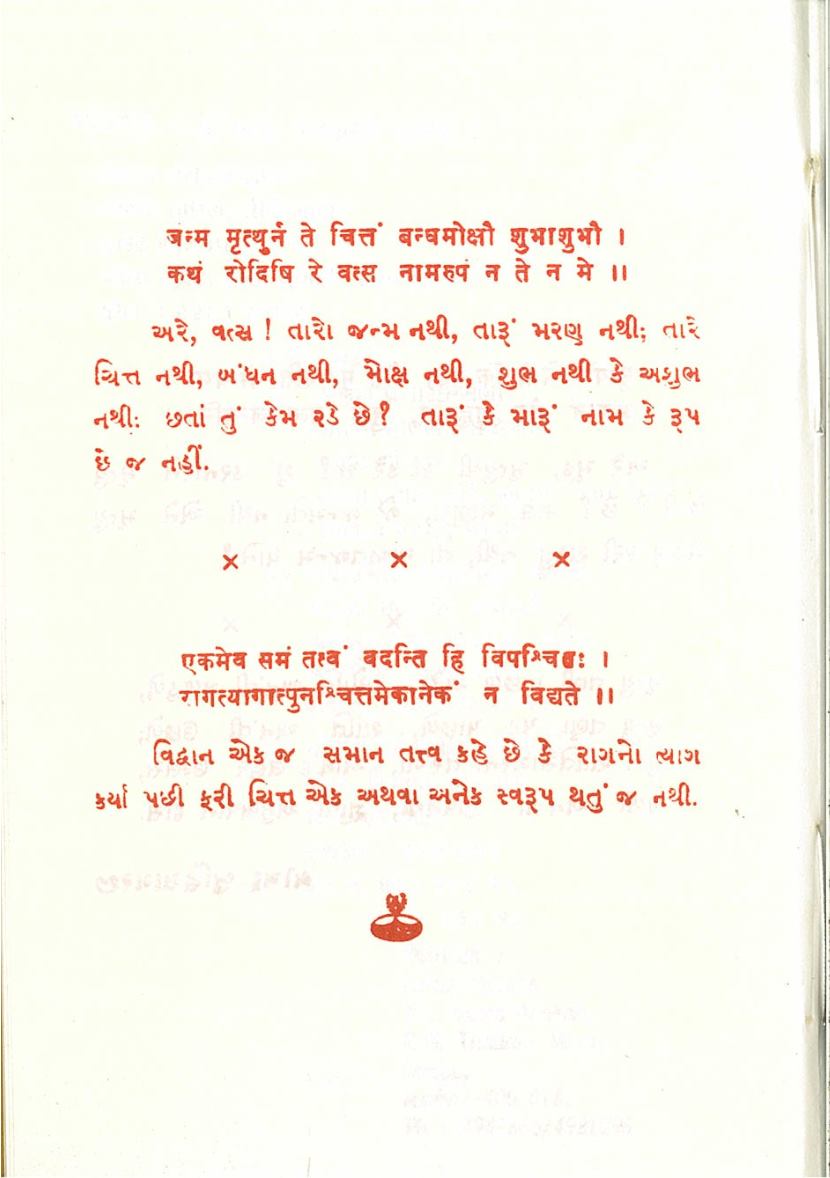 जन्म मृत्युर्न ते चित्तं बन्धमोक्षौ शुभाशुभौ ।
कथं रोदिषि रे वत्स नामरुपं न ते न मे ।।
અરે, વત્સ ! તારો જન્મ નથી, તારૂં મરણ નથી; તારે
ચિત્ત નથી, બંધન નથી, મોક્ષ નથી, શુભ નથી કે અશુભ
નથીઃ છતાં તું કેમ રડે છે? તારૂં કે મારૂં નામ કે રૂપ
છે જ નહીં.
× × ×
एकमेव समं तत्त्वं वदन्ति हि विपश्चितः ।
रागत्यागात्पुनश्चित्तमेकानेकं न विद्यते ।।
વિદ્વાન એક જ સમાન તત્ત્વ કહે છે કે રાગનો ત્યાગ
કર્યા પછી ફરી ચિત્ત એક અથવા અનેક સ્વરૂપ થતું જ નથી.